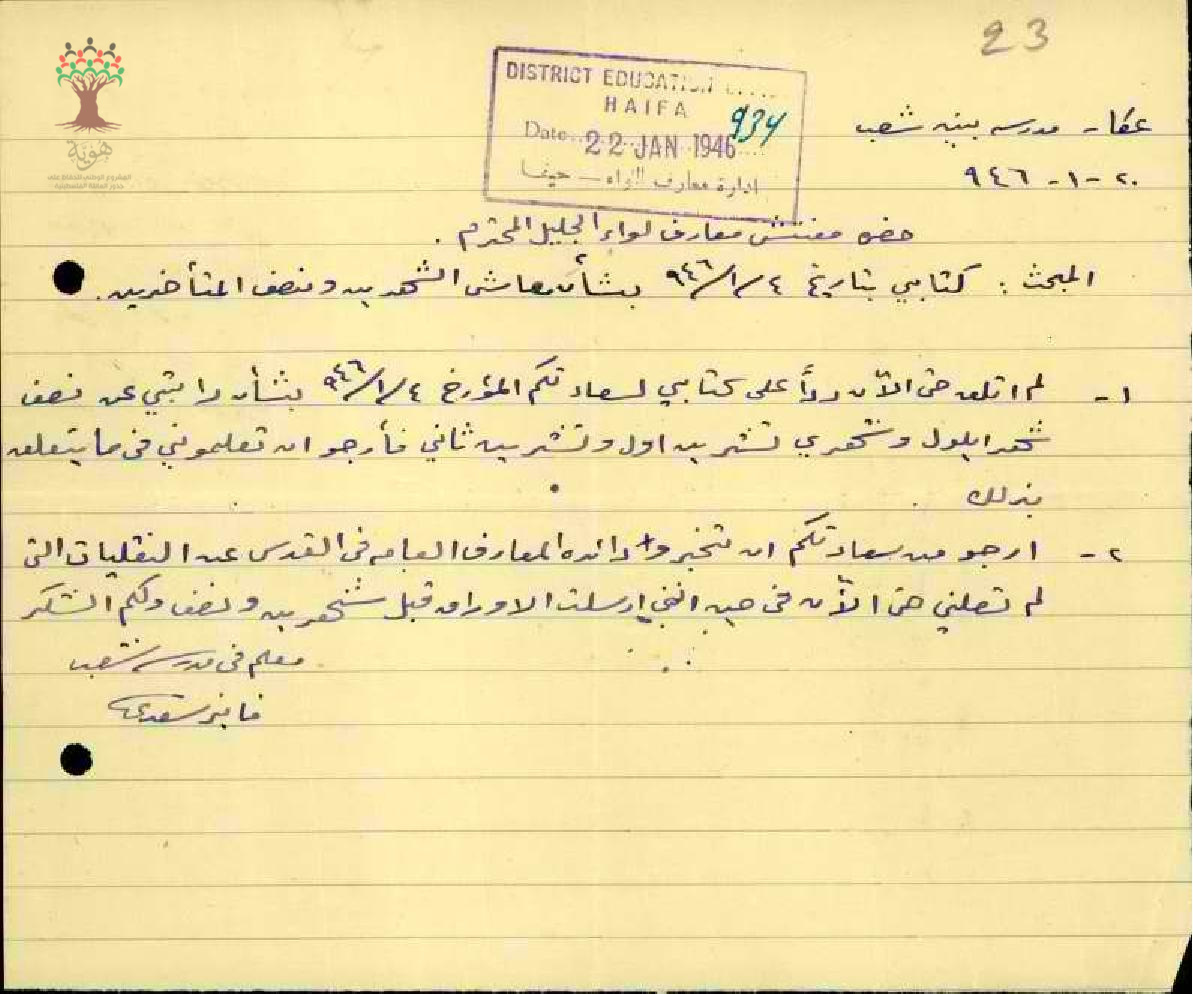 23
DISTRICT EDUCATION
HAIFA
934
Date 22 JAN 1946
ادارة معارف اللواء - حيفا
هوية
المشروع الوطني للحفاظ على
جذور العائلة الفلسطينية
عكا - مدرسة بنين شعب
٢٠-١-٩٤٦
حضرة مفتش معارف لواء الجليل المحترم .
المبحث : كتابي بتاريخ ٩٤٦/١/٤ بشأن معاش الشهرين ونصف المتأخرين .
١- لم اتلق حتى الآن رداً على كتابي لسعادتكم المؤرخ ٩٤٦/١/٤ بشأن راتبي عن نصف
شهر ايلول وشهري تشرين اول وتشرين ثاني فأرجو ان تعلموني في ما يتعلق
بذلك .
٢- ارجو من سعادتكم ان تخبروا دائرة المعارف العامه في القدس عن النقليات التي
لم تصلني حتى الآن في حين انني ارسلت الاوراق قبل شهرين ونصف ولكم الشكر
معلم في مدرسة شعب
فايز سعدي